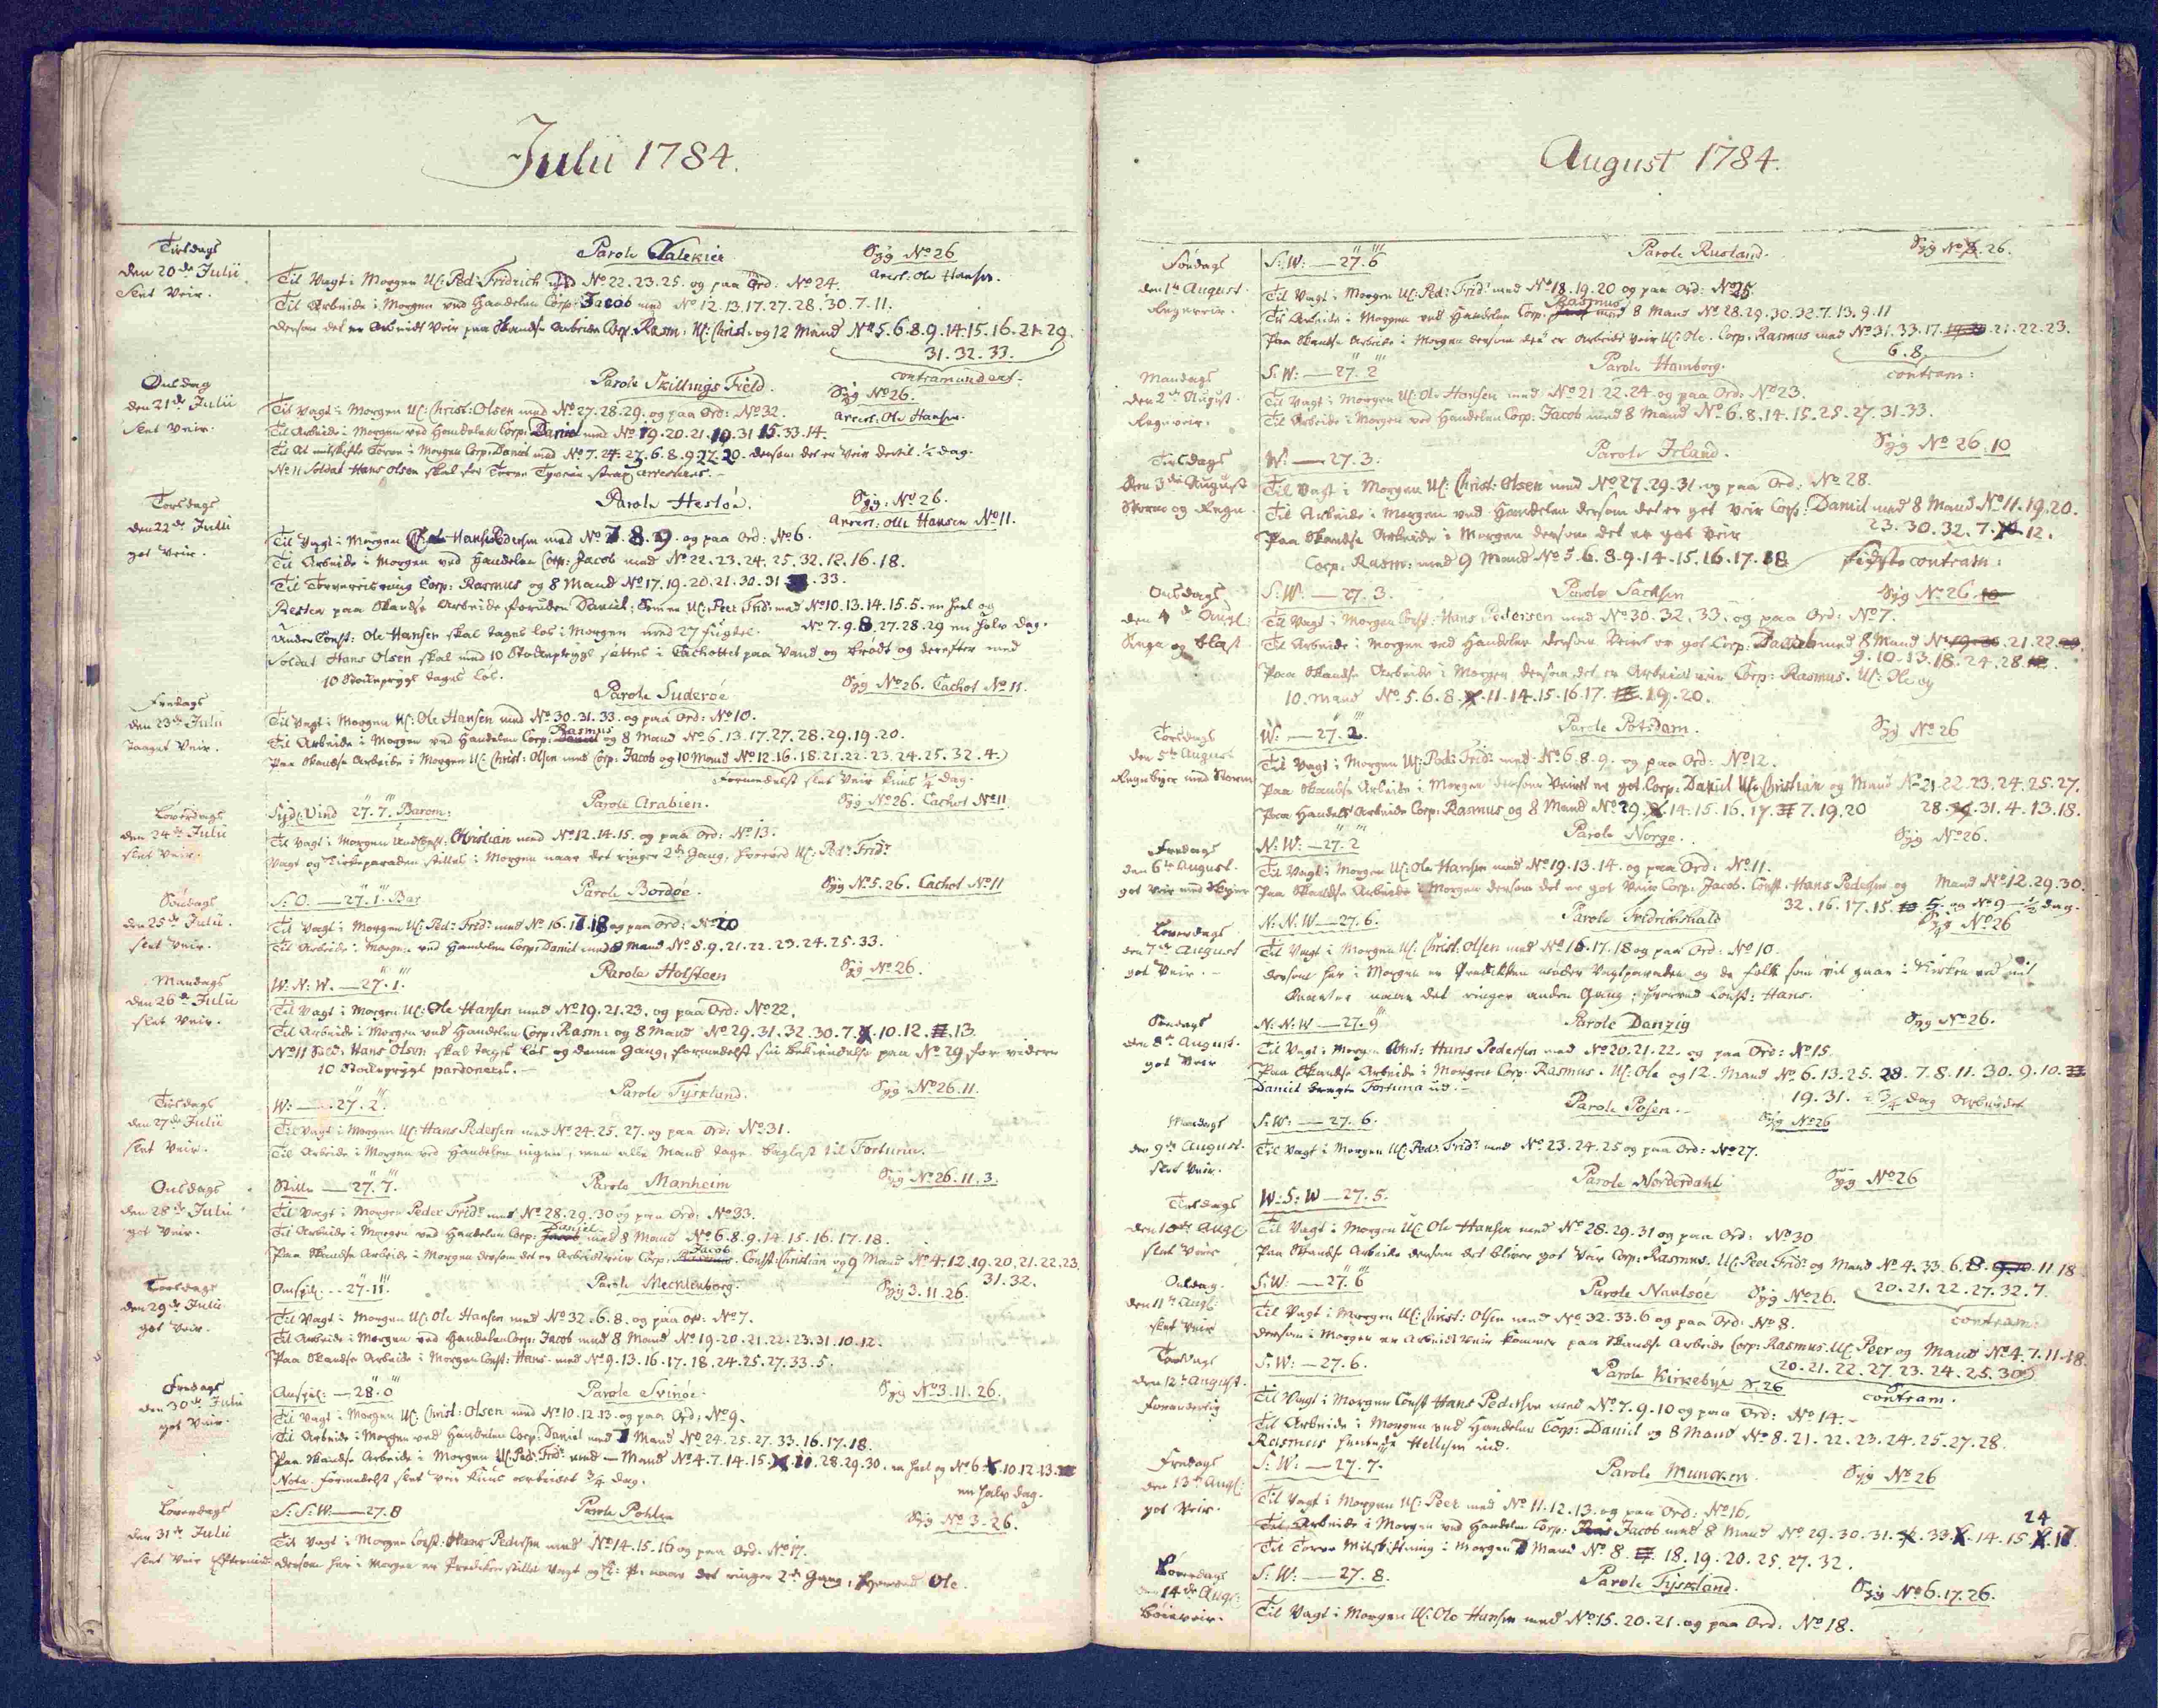 Julii 1784.
Tirsdags
den 20de Julii.
slet Veir.
Parole
Syg No 26
Arrest: Ole Hansen.
Til Vagt i Morgen UC: Ped: Fridrich No 22.23.25. og paa Ord: No 24.
Til Arbeide i Morgen ved Handelen Corp: Jacob med No 12.13.17.27.28.30.7.11.
dersom det er Arbeids Veir paa Skandse Arbeide Corp. Rasm: UC: Christ. og 12 Mand No 5.6.8.9.14.15.16.21.29.
31.32.33.
contramanderet.
Onsdag
den 21de Julii
slet Veir.
Parole Skillings Field.
Syg No 26.
Arrest: Ole Hansen.
Til Vagt i Morgen UC: Christ: Olsen med No 27.28.29. og paa Ord: No 32.
Til Arbeide i Morgen ved Handelen Corp: Daniel med No 19.20.21.10.31.15.33.14.
Til at udskifte Törve i Morgen Corp. Daniel med No 7.24.27.6.8.9.22.20. dersom det er Veir dertil ½ dag.
No 11 Soldat Hans Olsen skal for Törve Tyverie strax arresteres.
Torsdags
den 22de Julii
got Veir.
Parole Hestöe.
Syg: No 26.
Arrest: Olle Hansen No 11.
Til Vagt i Morgen Hans Pedersen med No 7.8.9. og paa Ord: No 6.
Til Arbeide i Morgen ved Handelen Corp: Jacob med No 22.23.24.25.32.12.16.18.
Til Törverisning Corp: Rasmus og 8 Mand No 17.19.20.21.30.31 .33.
Resten paa Skandse Arbeide foruden Daniel; UC: Peer Frid: med No 10.13.14.15.5. en heel og
No 7.9.8.27.28.29 en halv dag.
Under Const: Ole Hansen skal tages los i Morgen med 27 fugtel.
Soldat Hans Olsen skal med 10 Stokkeprygl sættes i Cachottet paa Vand og brödt og derefter med
10 Stokkeprygl tages los.
Fredags
den 23de Julii
taaget Veir.
Parole Suderöe
Syg No 26. Cachot No 11.
Til Vagt i Morgen UC: Ole Hansen med No 30.31.33. og paa Ord: No 10.
Rasmus
Til Arbeide i Morgen ved Handelen Corp: Daniel og 8 Mand No 6.13.17.27.28.29.19.20.
Paa Skandse Arbeide i Morgen UC: Christ: Olsen med Corp: Jacob og 10 Mand No 12.16.18.21.22.23.24.25.32.4.)
formedelst slet Veir kuns ¼ dag.
Löverdags
den 24de Julii
slet Veir.
Syd: Vind 27". 7"'. Barom:
Parole Arabien.
Syg No 26. Cachot No 11
Til Vagt i Morgen UndConst: Christian med No 12.14.15. og paa Ord: No 13.
Vagt og Kirkeparaden stilles i Morgen naar det ringer 2de Gang, hvorved UC: Ped: Frid:
Söndags
den 25de Julii.
slet Veir.
S: O. — 27". 1"'. Bar
Parole Bordöe.
Syg No 5.26. Cachot No 11
Til Vagt i Morgen UC: Ped: Frid: med No 16.17.18 og paa Ord: No 20
Til Arbeide i Morgen ved Handelen Corp: Daniel med 8 Mand No 8.9.21.22.23.24.25.33.
Mandags
den 26de Julii
slet Veir.
W: N: W. — 27". 1"'.
Parole Holsteen
Syg No 26.
Til Vagt i Morgen UC: Ole Hansen med No 19.21.23. og paa Ord: No 22.
Til Arbeide i Morgen ved Handelen Corp: Rasm: og 8 Mand No 29.31.32.30.7. .10.12. .13
No 11 Sold: Hans Olsen skal tages los og denne Gang, formedelst sin bekiendelse paa No 29 for videre
10 Stokkeprygl pardoneres.
Tirsdags
den 27de Julii
slet Veir.
W: — 27". 2"'.
Parole Tyskland.
Syg: No 26.11.
Til Vagt i Morgen UC: Hans Pedersen med No 24.25.27. og paa Ord: No 31.
Til Arbeide i Morgen ved Handelen ingen, men alle Mand tage baglast til Fortuna.
Onsdags
den 28de Julii
got Veir.
Stille — 27". 7"'.
Parole Manheim
Syg No 26.11.3.
Til Vagt i Morgen Peder Frid: med No 28.29.30 og paa Ord: No 33.
Daniel
Til Arbeide i Morgen ved Handelen Corp: Jacob med 8 Mand No 6.8.9.14.15.16.17.18.
Jacob
Paa Skandse Arbeide i Morgen dersom det er Arbeidsveir Corp: Rasmus. Const: Christian og 9 Mand No 4.12.19.20.21.22.23
31.32.
Torsdags
den 29de Julii
got Veir.
Omspil. — 27". 11"'.
Parole Mecklenborg.
Syg 3.11.26.
Til Vagt i Morgen UC: Ole Hansen med No 32.6.8. og paa Ord: No 7.
Til Arbeide i Morgen ved Handelen Corp: Jacob med 8 Mand No 19.20.21.22.23.31.10.12.
Paa Skandse Arbeide i Morgen Const: Hans med No 9.13.16.17.18.24.25.27.33.5.
Fredags
den 30de Julii
got Veir.
Omspil: — 28". 0"'
Parole Svinöe.
Syg No 3.11.26.
Til Vagt i Morgen UC: Christ: Olsen med No 10.12.13. og paa Ord: No 9.
Til Arbeide i Morgen ved Handelen Corp: Daniel med 7 Mand No 24.25.27.33.16.17.18.
Paa Skandse Arbeide i Morgen UC: Ped: Frid: med — Mand No 4.7.14.15. .28.29.30. en heel og No 6. .10.12.13.
en halv dag.
Nota. formedelst slet Veir kuns arbeidet ¾ dag.
Löverdags
den 31de Julii
slet Veir Eftermid:
S: S: W: — 27. 8
Parole Pohlen
Syg No 3.26.
Til Vagt i Morgen Const: Hans Pedersen med No 14.15.16 og paa Ord: No 17.
dersom her i Morgen er Prediken stilles Vagt og K: P: naar det ringer 2de Gang, hvorved Ole.
August 1784.
Söndags
den 1te August.
Regnveir.
S: W: — 27". 6"'
Parole Rusland.
Syg No .26.
Til Vagt i Morgen UC: Ped: Frid: med No 18.19.20 og paa Ord: No 25.
Rasmus
Til Arbeide i Morgen ved Handelen Corp. Jacob med 8 Mand No 28.29.30.32.7.13.9.11
Paa Skandse Arbeide i Morgen dersom det er Arbeids Veir UC: Ole. Corp: Rasmus med No 31.33.17. .21.22.23.
6.8.
contram:
Mandags
den 2de August.
Regnveir.
S: W: — 27". 2"'
Parole Hamborg.
Til Vagt i Morgen UC: Ole Hansen med No 21.22.24 og paa Ord: No 23.
Til Arbeide i Morgen ved Handelen Corp. Jacob med 8 Mand No 6.8.14.15.25.27.31.33.
Tirsdags
den 3die August
Storm og Regn
W: — 27. 3.
Parole Irland.
Syg No 26.10
Til Vagt i Morgen UC: Christ: Olsen med No 27.29.31. og paa Ord: No 28.
Til Arbeide i Morgen ved Handelen dersom det er got Veir Corp: Daniel med 8 Mand No 11.19.20.
23.30.32.7. .12.
Paa Skandse Arbeide i Morgen dersom det er got Veir
Corp: Rasm: med 9 Mand No 5.6.8.9.14.15.16.17.18
sidste contram:
Onsdags
den 4de Augl:
Regn og blæst
S: W: — 27. 3.
Parole Sachsen
Syg No 26.10
Til Vagt i Morgen Const: Hans Pedersen med No 30.32.33. og paa Ord: No 7.
Til Arbeide i Morgen ved Handelen dersom Veiret er got Corp: Jacob med 8 Mand No 19.20.21.22.23.
9.10.13.18.24.28. .
Paa Skandse Arbeide i Morgen dersom det er Arbeidsveir Corp: Rasmus. UC: Ole og
10 Mand No 5.6.8. .11.14.15.16.17. .19.20.
Torsdags
den 5te August
Regnbyger med Storm
W: — 27". 2"'.
Parole Potsdam.
Syg No 26
Til Vagt i Morgen UC: Ped: Frid: med No 6.8.9. og paa Ord: No 12.
Paa Skandse Arbeide i Morgen dersom Veiret er got Corp: Daniel UC: Christian og Mand No 21.22.23.24.25.27.
28. .31.4.13.18.
Paa Handels Arbeide Corp: Rasmus og 8 Mand No 29. .14.15.16.17. 7.19.20
Fredags
den 6te August.
got Veir med Byger
N: W: — 27". 2"'
Parole Norge.
Syg No 26.
Til Vagt i Morgen UC: Ole Hansen med No 19.13.14. og paa Ord: No 11.
Paa Skandse Arbeide i Morgen dersom det er got Veir Corp: Jacob. Const: Hans Pedersen og Mand No 12.29.30.
32.16.17.15. 5. og No 9 — ½ dag.
Löverdags
den 7de August
got Veir.
N: N: W — 27. 6.
Parole Fridrichshald
Syg No 26
Til Vagt i Morgen UC: Christ: Olsen med No 16.17.18 og paa Ord: No 10.
dersom her i Morgen er Prediken möder Vagtparaden og de folk som vil gaae i Kirken ved mit
Qvarter naar det ringer anden Gang; hvorved Const: Hans.
Söndags
den 8de August.
got Veir
N: N: W — 27. 9"'
Parole Danzig
Syg No 26.
Til Vagt i Morgen Const: Hans Pedersen med No 20.21.22. og paa Ord: No 15.
Paa Skandse Arbeide i Morgen Corp: Rasmus. UC: Ole og 12 Mand No 6.13.25.28.7.8.11.30.9.10.
19.31. i ¾ dag Arbeidet
Daniel bragte Fortuna ud.
Mandags
den 9de August.
slet Veir.
S: W: — 27. 6.
Parole Posen.
Syg No 26
Til Vagt i Morgen UC: Ped: Frid: med No 23.24.25 og paa Ord: No 27.
Tirsdags
den 10de Augl:
slet Veir
W: S: W — 27. 5.
Parole Norderdahl
Syg No 26
Til Vagt i Morgen UC Ole Hansen med No 28.29.31 og paa Ord: No 30
Paa Skandse Arbeide dersom det bliver got Veir Corp: Rasmus. UC: Peer Frid: og Mand No 4.33.6.8.9.10.11.18
20.21.22.27.32.7.
contram:
Onsdag.
den 11te Augl:
slet Veir
S: W: — 27". 6"'
Parole Naalsöe
Syg No 26.
Til Vagt i Morgen UC: Christ: Olsen med No 32.33.6 og paa Ord: No 8.
dersom i Morgen er Arbeids Veir kommer paa Skandse Arbeide Corp: Rasmus. UC. Peer og Mand No 4.7.11.18
20.21.22.27.23.24.25.30)
contram.
Torsdags
den 12te August.
foranderlig
S: W: — 27. 6.
Parole Kirkebye
S. 26
Til Vagt i Morgen Const Hans Pedersen med No 7.9.10 og paa Ord: No 14.
Til Arbeide i Morgen ved Handelen Corp: Daniel og 8 Mand No 8.21.22.23.24.25.27.28.
Rasmus hentede Hellisen ind.
Fredags
den 13de Augl:
got Veir.
S: W: — 27. 7.
Parole Muncken
Syg No 26
Til Vagt i Morgen UC: Peer med No 11.12.13. og paa Ord: No 16.
24
Til Arbeide i Morgen ved Handelen Corp: Jacob med 8 Mand No 29.30.31. .33. .14.15. .17.
Til Törve Udskiftning i Morgen 7 Mand No 8. .18.19.20.25.27.32.
Löverdags
den 14de Augl:
böieveir.
S: W: — 27. 8.
Parole Tyskland.
Syg No 6.17.26.
Til Vagt i Morgen UC: Ole Hansen med No 15.20.21. og paa Ord: No 18.